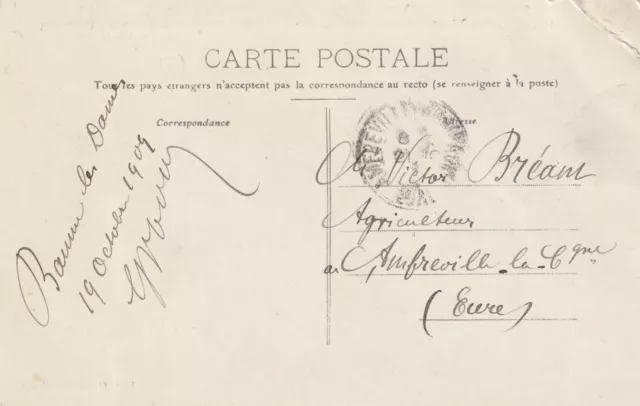 CARTE POSTALE
Tous les pays étrangers n'acceptent pas la correspondance au recto (se renseigner à la poste)
Correspondance
Adresse
Baume les Dames
19 Octobre 1909
M Victor Bréant
Agriculteur
à Amfreville-la-Cgne
(Eure)